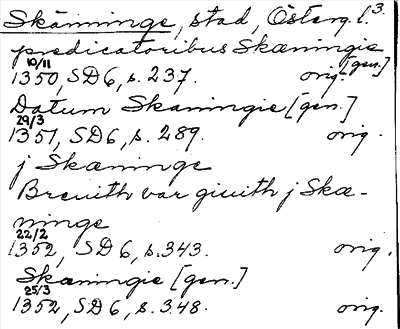 Skänninge, stad, Österg. l. 3.
predicatoribus Skæningie [gen.]
10/11
1350, SD 6, s. 237. orig.
Datum Skæningie [gen.]
29/3
1351, SD 6, s. 289. orig.
j Skæninge
Breuith var giuith j Skæ-
ninge
22/2
1352, SD 6, s. 343. orig.
Skæningie [gen.]
25/3
1352, SD 6, s. 348. orig.